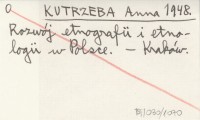 a KUTRZEBA Anna 1948.
Rozwój etnografii i etno-
logii w Polsce. — Kraków.
BJ1030/1070